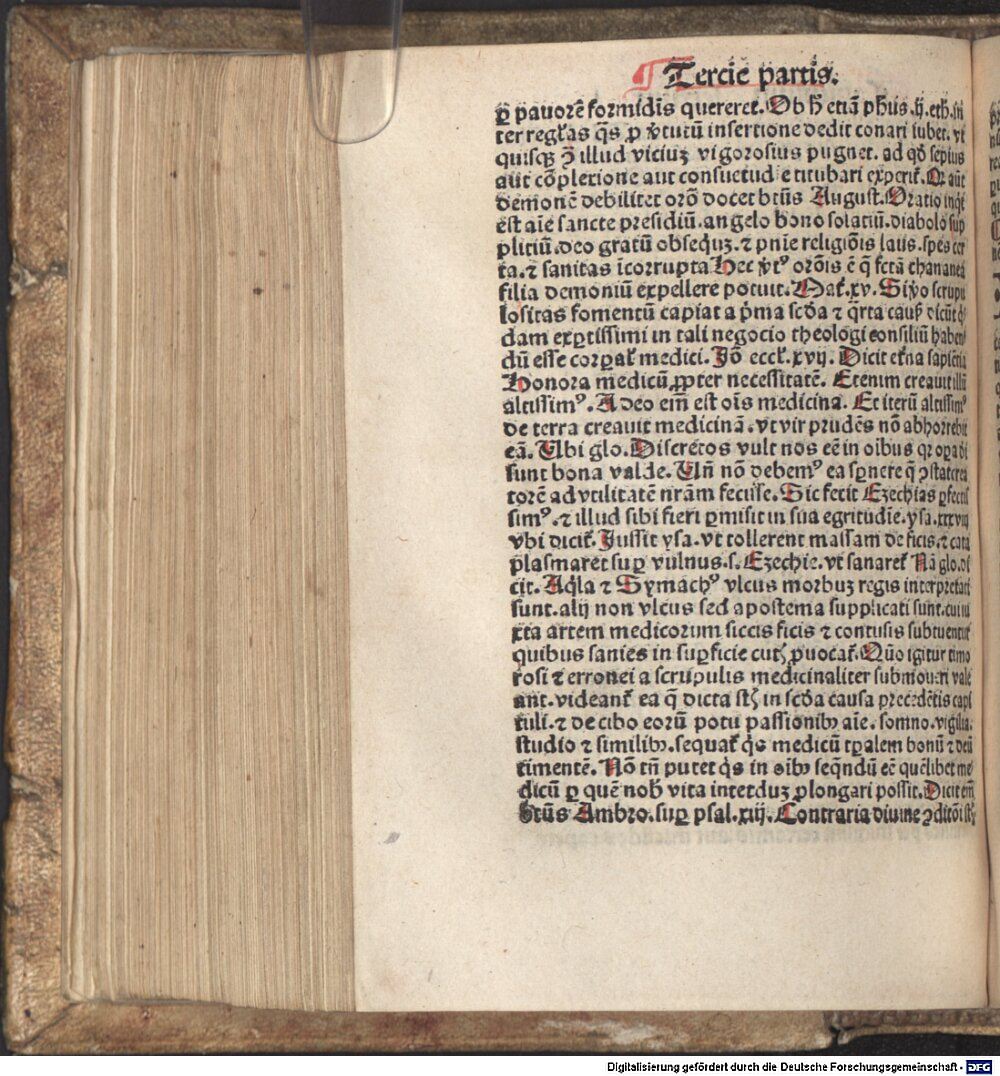 Tercie partis.
ꝑ pauorē formidīs quereret. Ob h̄ etiā ph̄us .ij. eth. in
ter regl̃as q̄s ꝓ v̓tutū insertione dedit conari iubet. vt
quisqꝫ ꝯ̄ illud viciuꝫ vigorosius pugnet. ad qd̄ sepius
aūt cōplexione aut consuetudīe titubari experit᷑. Qꝛ aūt
demonē debilitet orō docet btūs August. Oratio inq̄t
est aīe sancte presidiū. angelo bono solatiū. diabolo sup
pliciū. deo gratū obsequꝫ. ⁊ pn̄ie religiōis laus. spes cer
ta. ⁊ sanitas īcorrupta Hec v̓tꝰ orōis ē q̄ fetā chananea
filia demoniū expellere potuit. Mat᷑. xv. Si v̓o scrupu
lositas fomentū capiat a p̓ma scd̓a ⁊ q̄rta caus̄ dicūt q̓
dam exꝑtissimi in tali negocio theologi consiliū haben
dū esse corꝑal᷑ medici. Jō eccl᷑. xvij. Dicit etn̄a sapiētia
Honora medicū ꝓpter necessitatē. Etenim creauit illū
altissimꝰ. A deo em̄ est oīs medicina. Et iterū altissimꝰ
de terra creauit medicinā. vt vir prudēs nō abhorrebit
eā. Ubi glo. Discretos vult nos eē in oībus qꝛ oꝑa di
sunt bona valde. Un̄ nō debemꝰ ea sꝑnere q̄ ꝯstat crea
torē ad vtilitatē nr̄am fecisse. Sic fecit Ezechias ꝑfectis
simꝰ. ⁊ illud sibi fieri ꝑmisit in sua egritudīe. ysa. xxxviij
vbi dicit᷑. Jussit ysa. vt tollerent massam de ficis. ⁊ cata
plasmaret suꝑ vulnus .s. Ezechie. vt sanaret᷑ Nā glo. di
cit. Aq̓la ⁊ Symachꝰ vlcus morbuꝫ regis interpretati
sunt. alij non vlcus sed apostema supplicati sunt. cui iu
xta artem medicorum siccis ficis ⁊ contusis subtuentur
quibus sanies in suꝑficie cutꝭ ꝓuocat᷑. Qūo igitur timo
rosi ⁊ erronei a scrupulis medicinaliter submoueri vale
ant. videant᷑ ea q̄ dicta st̄ in scd̓a causa precedētis capi
tuli. ⁊ de cibo eorū potu passionibꝫ aīe. somno. vigilia.
studio ⁊ similibꝫ. sequat᷑ q̓s medicū tꝑalem bonū ⁊ deū
timentē. Nō tn̄ putet q̓s in oībꝫ seq̄ndū eē quēlibet me
dicū ꝑ quē nob̄ vita interduꝫ ꝓlongari possit. Dicit em̄
btūs Ambro. suꝑ psal. xiij. Contraria diuine ꝯditōi st̄
Digitalisierung gefördert durch die Deutsche Forschungsgemeinschaft - DFG